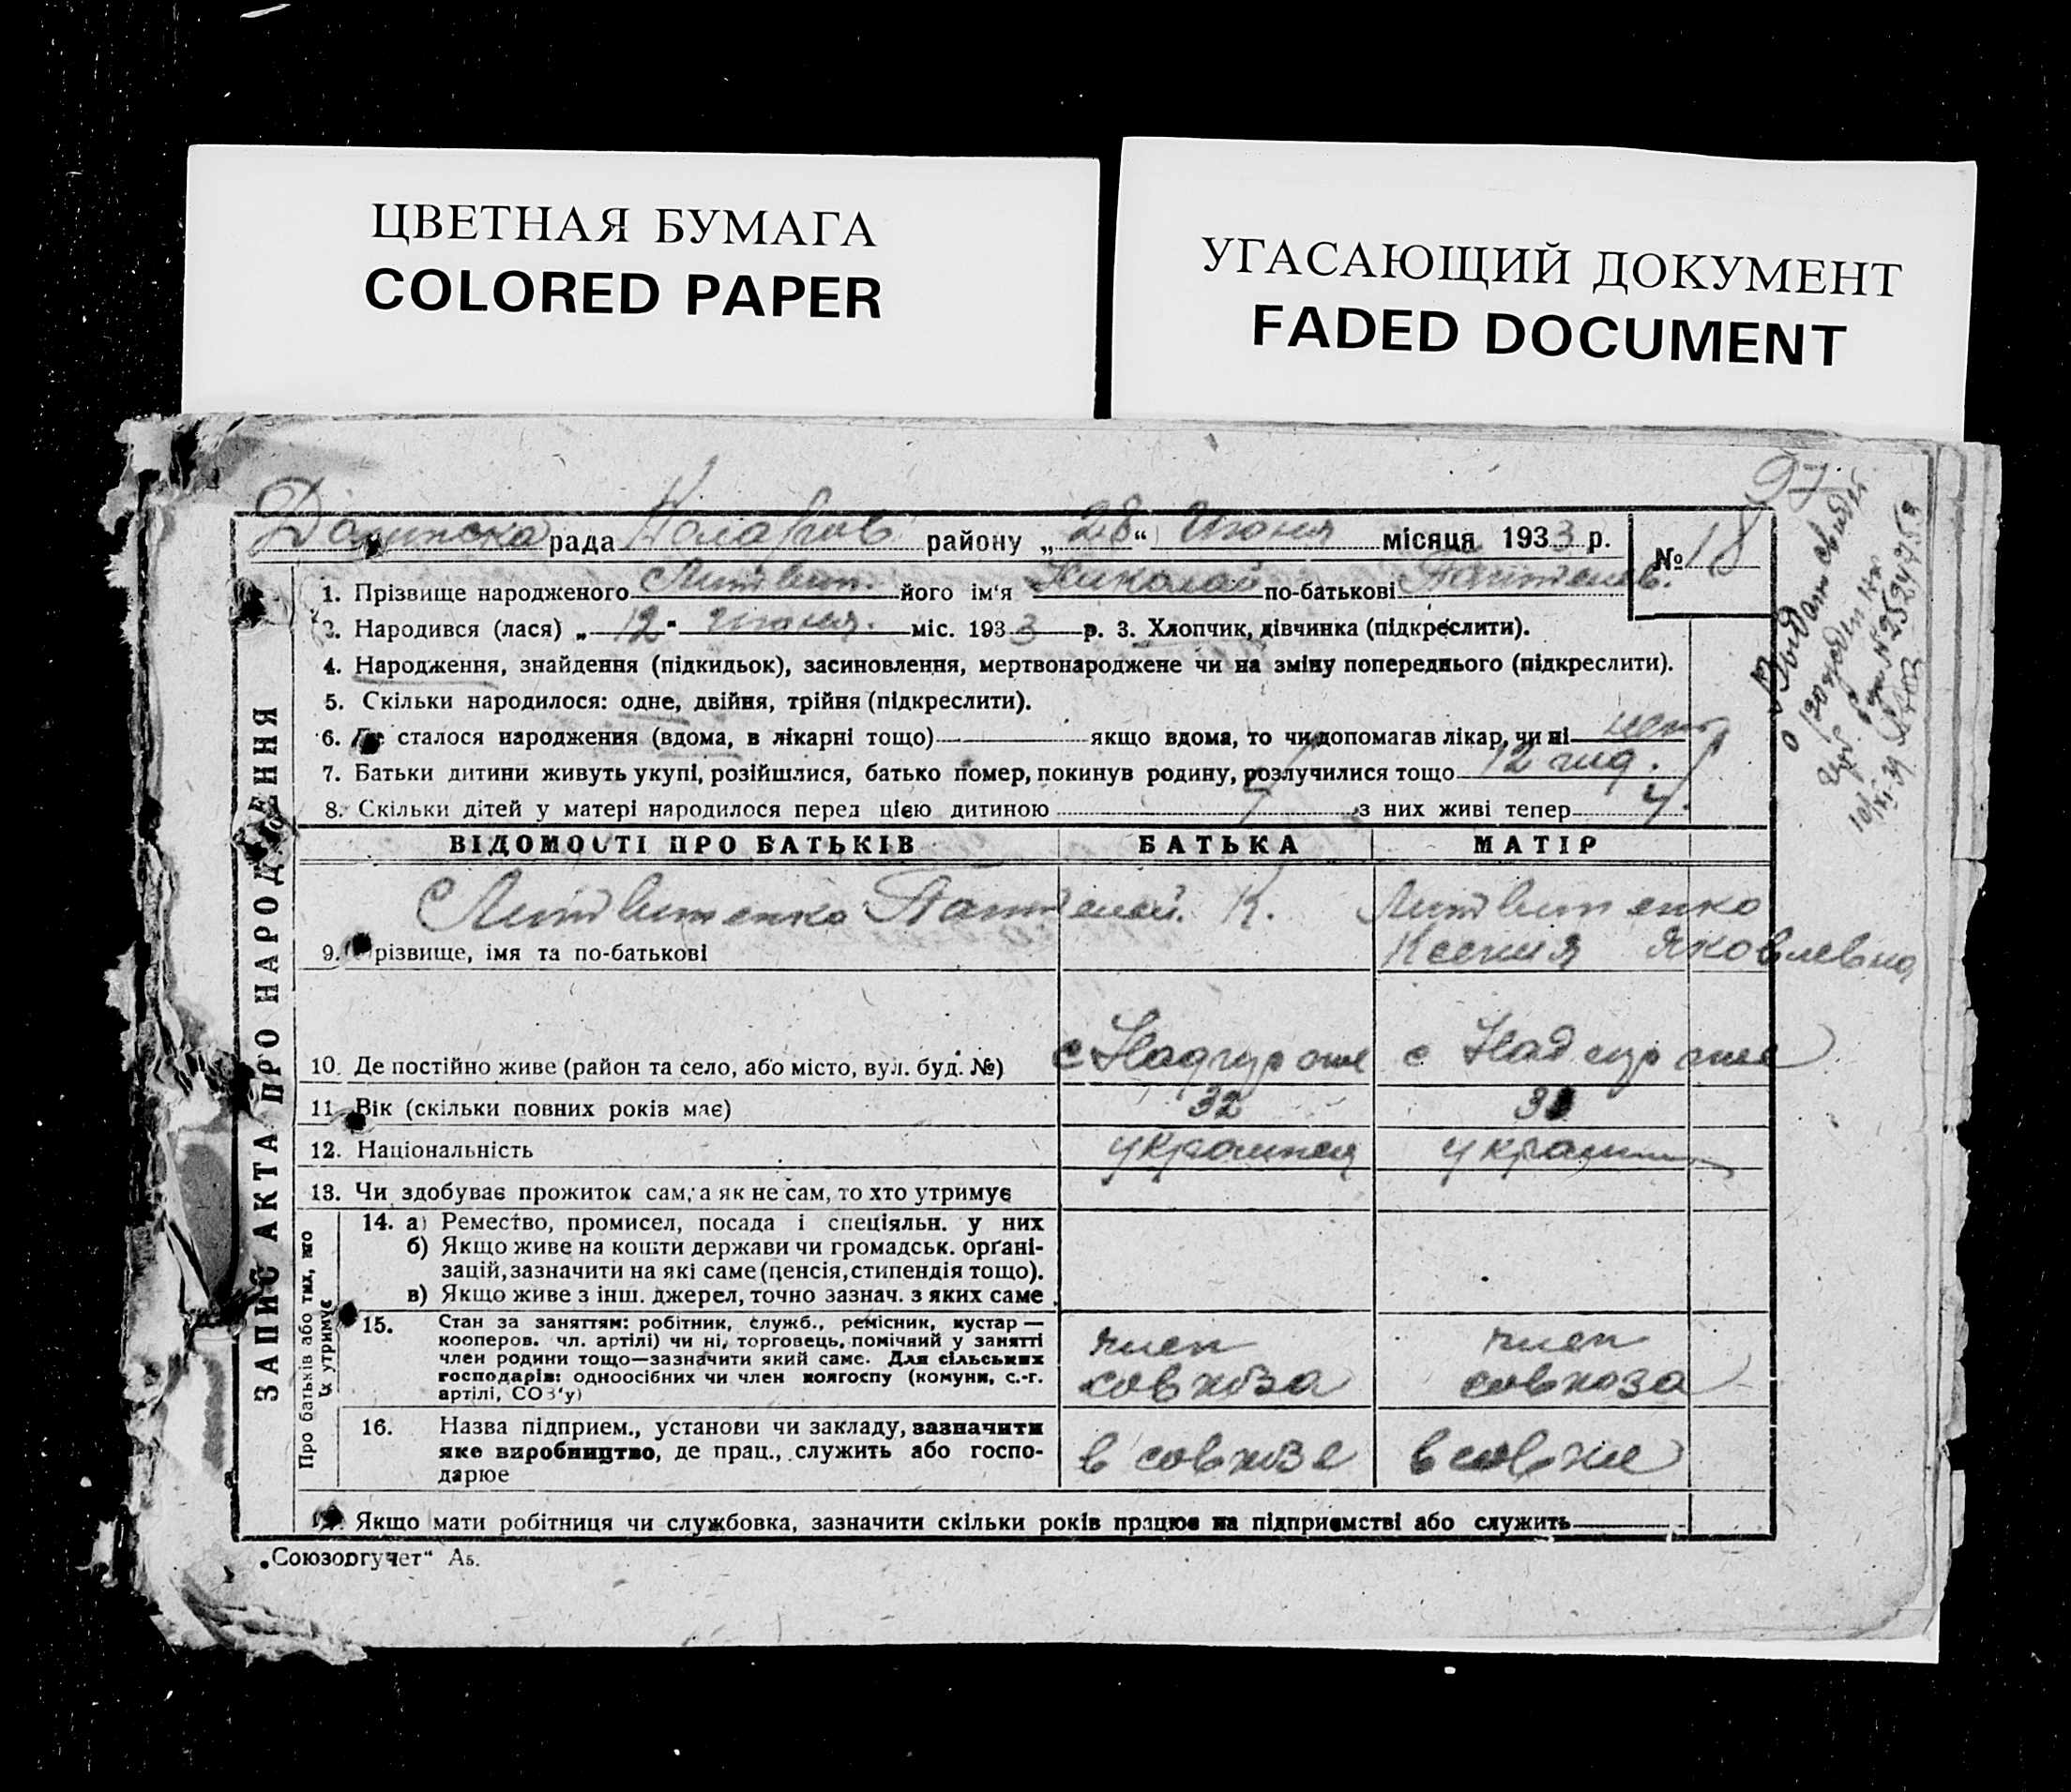 ЦВЕТНАЯ БУМАГА
COLORED PAPER
УГАСАЮЩИЙ ДОКУМЕНТ
FADED DOCUMENT
97
рада Коларов району „28“ Июня місяця 1933 р.
№ 18
1. Прізвище народженого Литвин. його ім'я Николай по-батькові Пантелеев.
2. Народився (лася) „12“ Июня. міс. 1933 р. 3. Хлопчик, дівчинка (підкреслити).
4. Народження, знайдення (підкидьок), засиновлення, мертвонароджене чи на зміну попереднього (підкреслити).
5. Скільки народилося: одне, двійня, трійня (підкреслити).
6. Де сталося народження (вдома, в лікарні тощо) якщо вдома, то чи допомагав лікар, чи ні нет
7. Батьки дитини живуть укупі, розійшлися, батько помер, покинув родину, розлучилися тощо 12
8. Скільки дітей у матері народилося перед цією дитиною 4 з них живі тепер 4.
ЗАПИС АКТА ПРО НАРОДЖЕННЯ
ВІДОМОСТІ ПРО БАТЬКІВ БАТЬКА МАТІР
Литвиненко Пантелей. К. Литвиненко
9. Прізвище, імя та по-батькові Ксения Яковлевна
10. Де постійно живе (район та село, або місто, вул. буд. №) с с
11. Вік (скільки повних років має) 32
12. Національність украинец
13. Чи здобуває прожиток сам, а як не сам, то хто утримує
Про батьків або тих, хто їх утримує
14. а) Ремество, промисел, посада і спеціяльн. у них
б) Якщо живе на кошти держави чи громадськ. орґані-
зацій, зазначити на які саме (пенсія, стипендія тощо).
в) Якщо живе з інш. джерел, точно зазнач. з яких саме
15. Стан за заняттям: робітник, служб., ремісник, кустар—
кооперов. чл. артілі) чи ні, торговець, помічний у занятті
член родини тощо—зазначити який саме. Для сільських
господарів: одноосібних чи член колгоспу (комуни, с.-г.
артілі, СОЗ'у)
член совхоза член совхоза
16. Назва підприєм., установи чи закладу, зазначити
яке виробництво, де прац., служить або госпо-
дарює
в совхозе в совхозе
17. Якщо мати робітниця чи службовка, зазначити скільки років працює на підприємстві або служить
„Союзоргучет“ А5.
Выдат свидет
о рожден